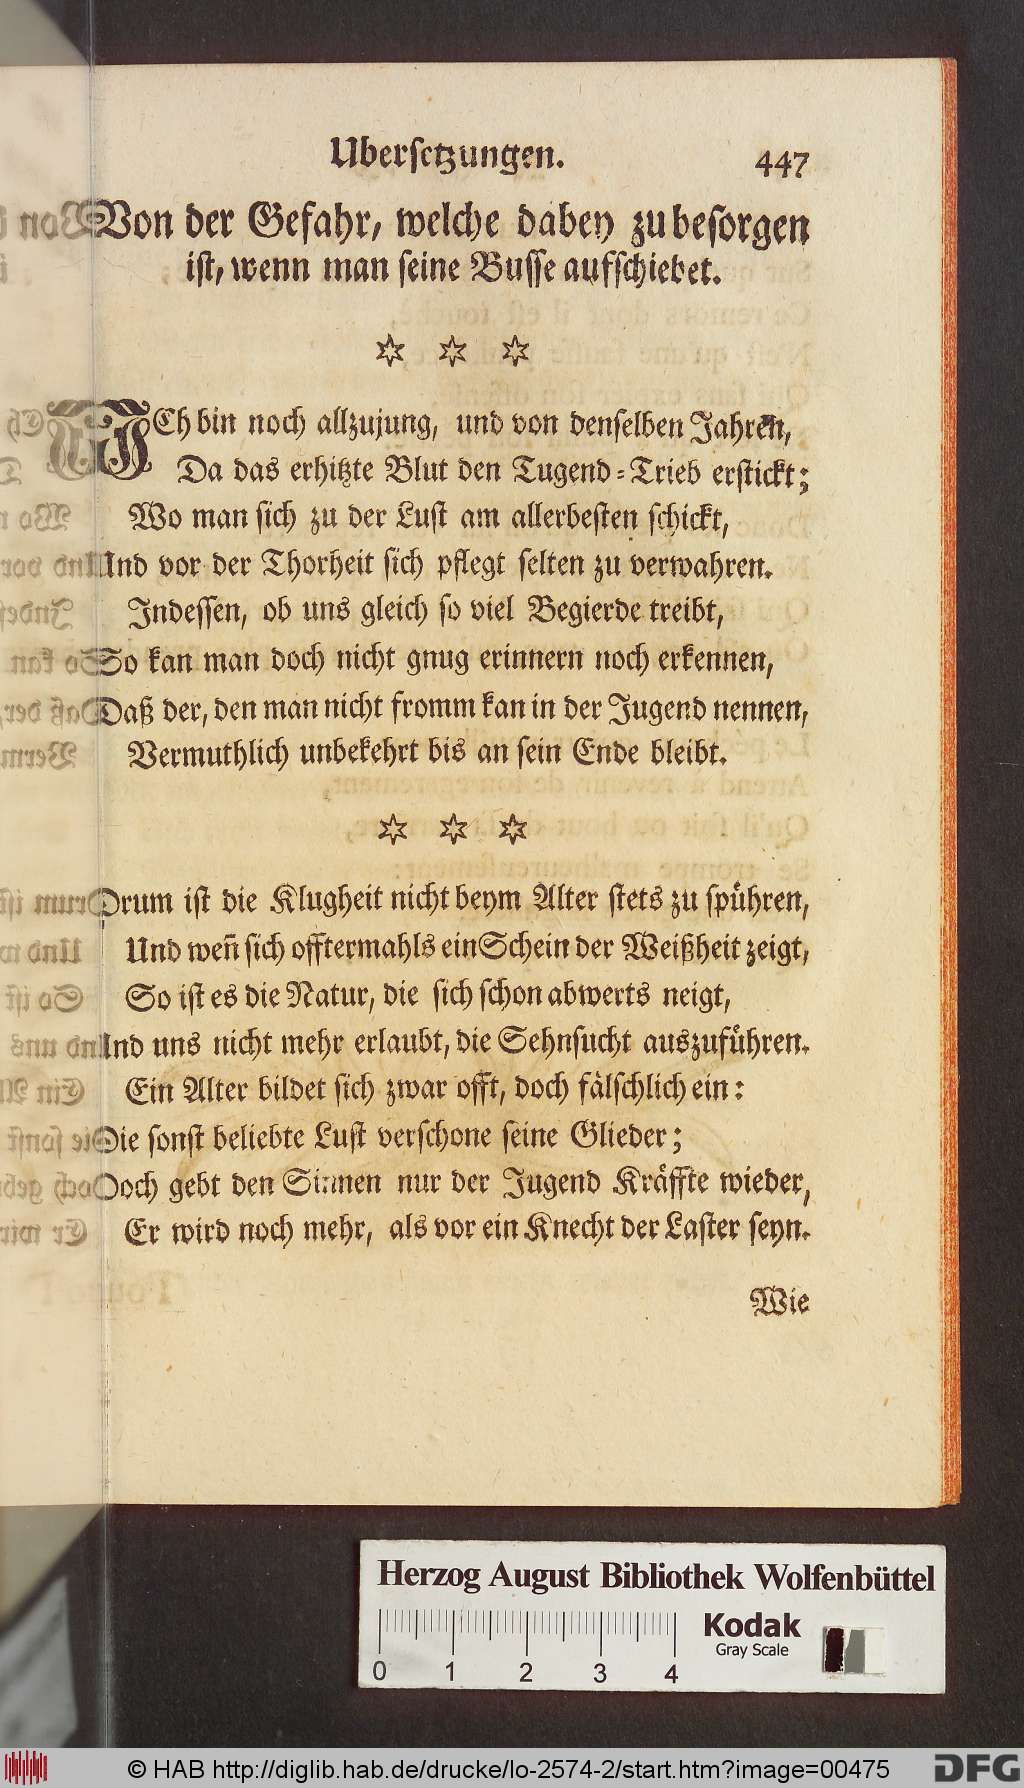 Ubersetzungen. 447
Von der Gefahr, welche dabey zu besorgen
ist, wenn man seine Busse aufschiebet.
ICh bin noch allzujung, und von denselben Jahren,
Da das erhitzte Blut den Tugend-Trieb erstickt;
Wo man sich zu der Lust am allerbesten schickt,
Und vor der Thorheit sich pflegt selten zu verwahren.
Indessen, ob uns gleich so viel Begierde treibt,
So kan man doch nicht gnug erinnern noch erkennen,
Daß der, den man nicht fromm kan in der Jugend nennen,
Vermuthlich unbekehrt bis an sein Ende bleibt.
Drum ist die Klugheit nicht beym Alter stets zu spühren,
Und weñ sich offtermahls ein Schein der Weißheit zeigt,
So ist es die Natur, die sich schon abwerts neigt,
Und uns nicht mehr erlaubt, die Sehnsucht auszuführen.
Ein Alter bildet sich zwar offt, doch fälschlich ein:
Die sonst beliebte Lust verschone seine Glieder;
Doch gebt den Sinnen nur der Jugend Kräffte wieder,
Er wird noch mehr, als vor ein Knecht der Laster seyn.
Wie
Herzog August Bibliothek Wolfenbüttel
Kodak
Gray Scale
0 1 2 3 4
© HAB http://diglib.hab.de/drucke/lo-2574-2/start.htm?image=00475
DFG